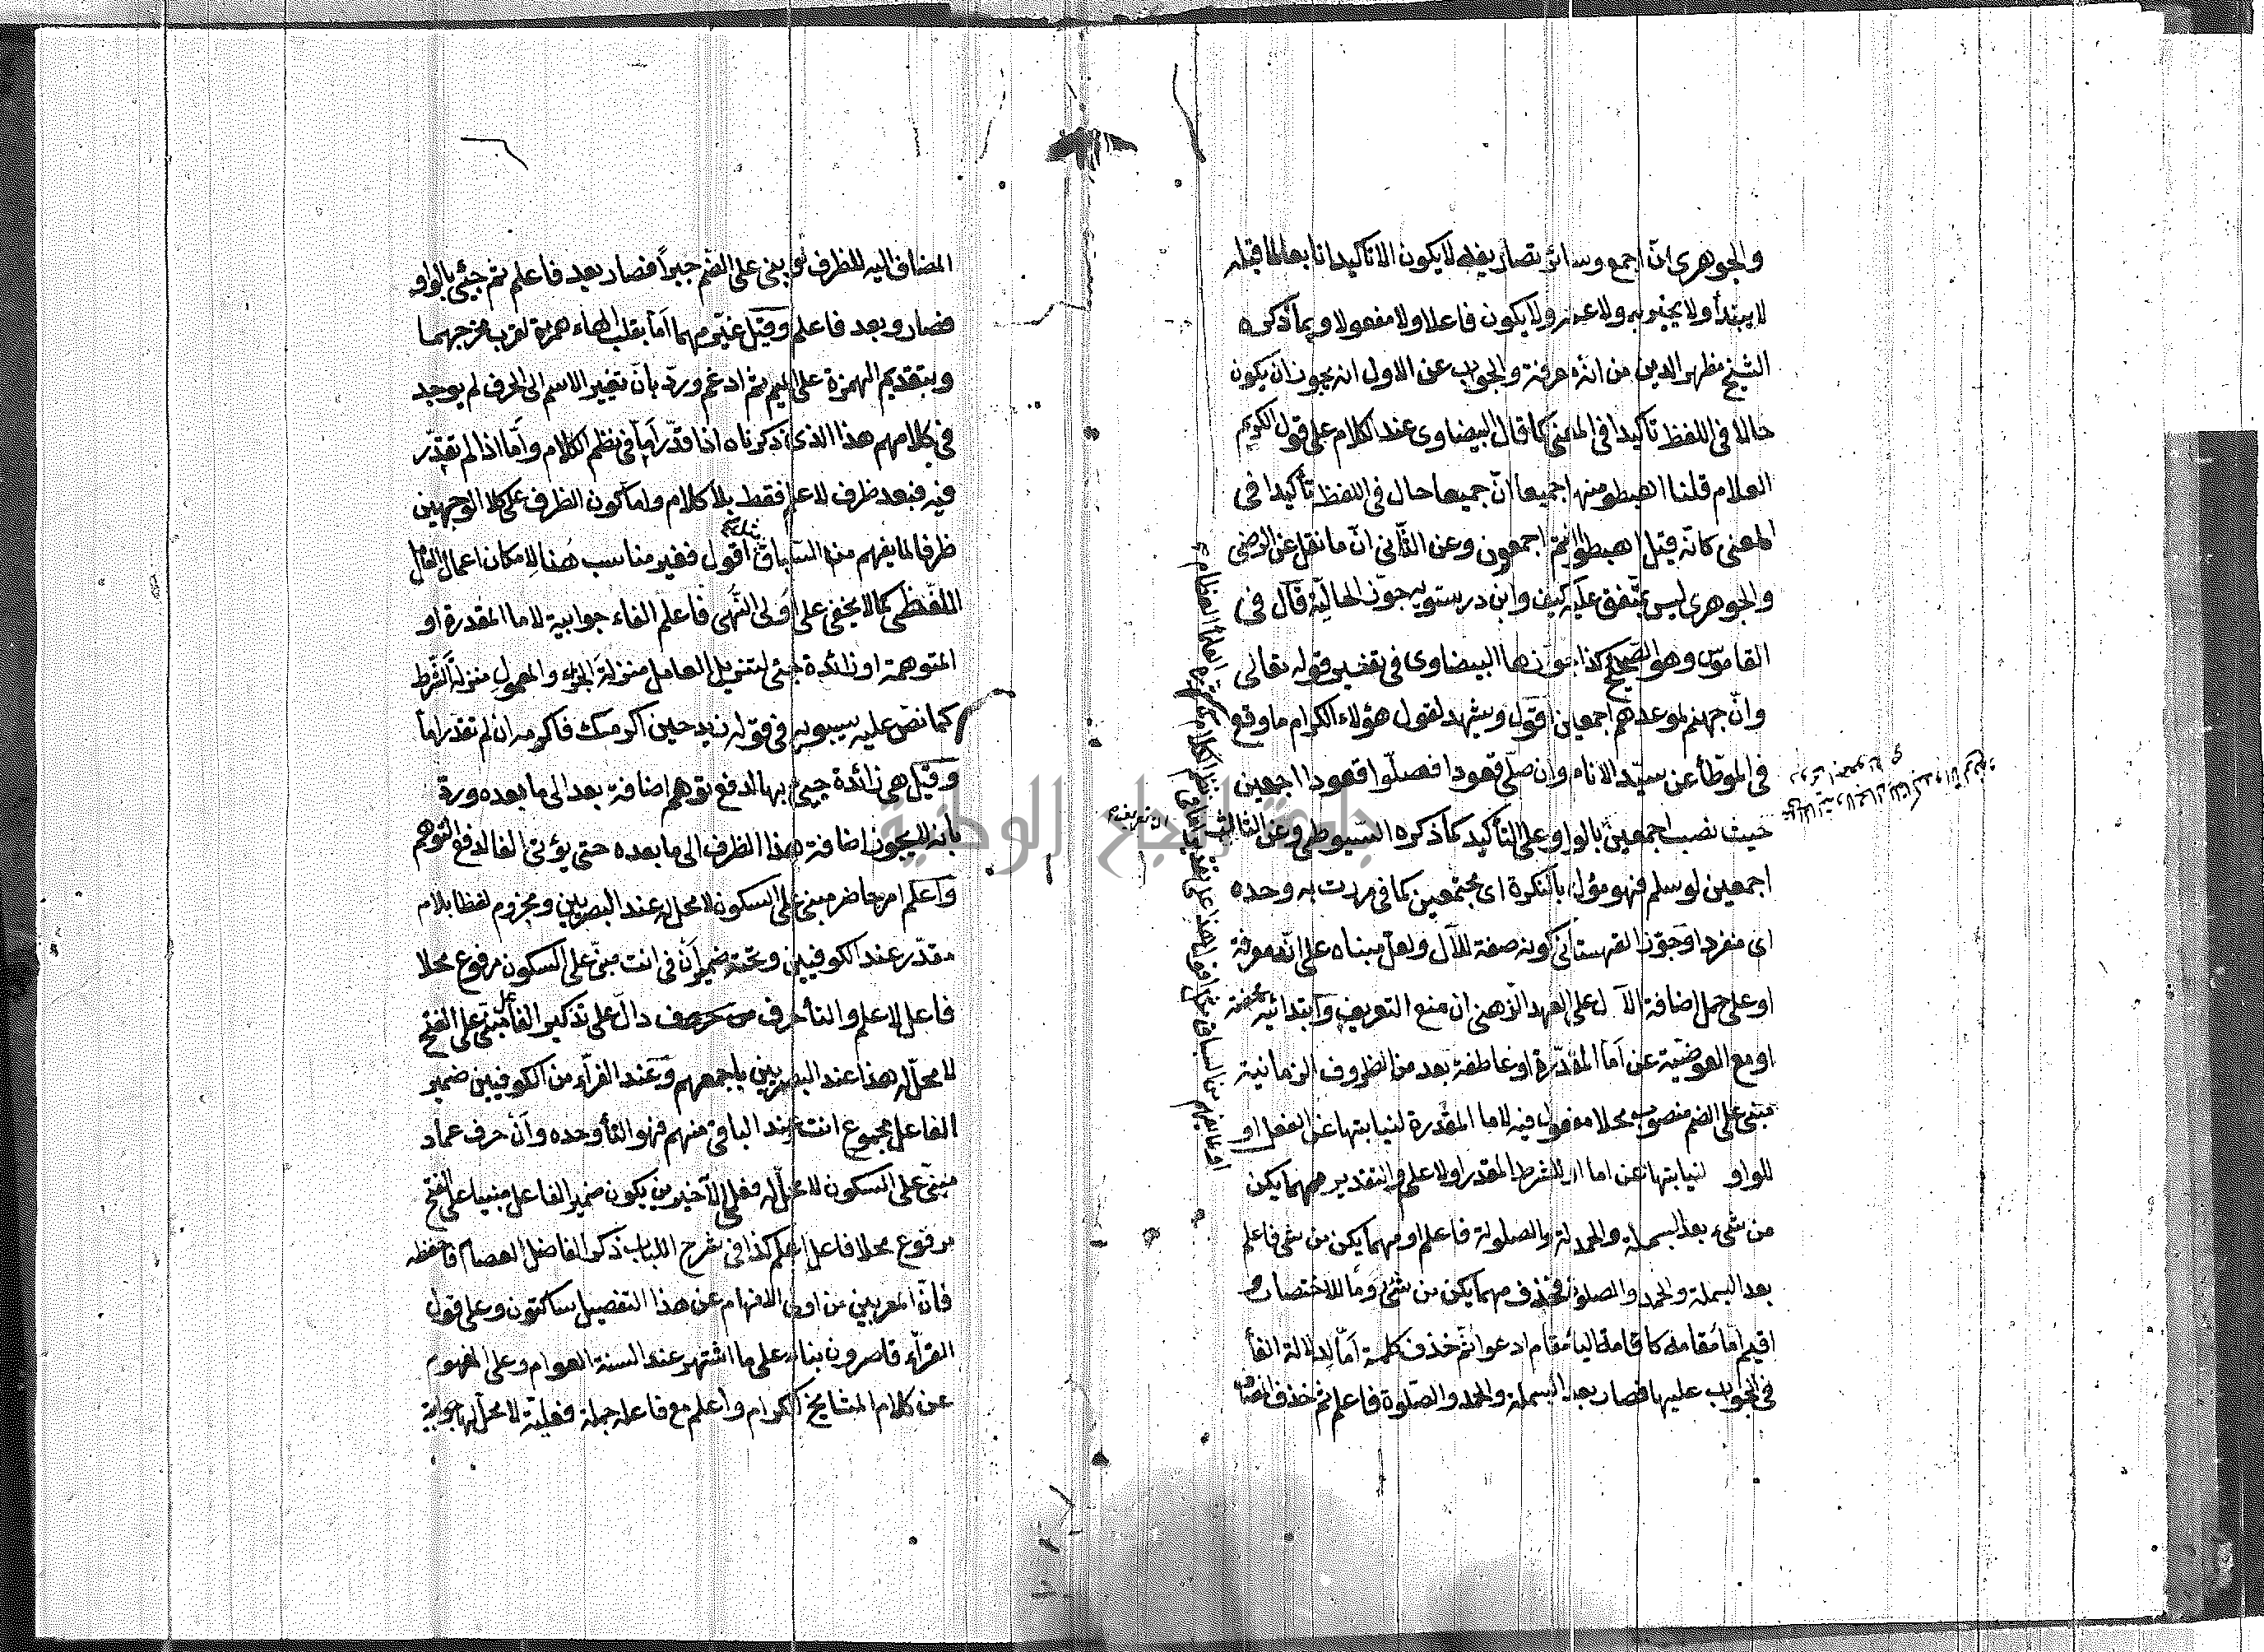 والجوهرى ان اجمع وسائر تصاريفه لا يكون الا تأكيدا تابعا لما قبله
لا يبتدأ ولا يخبر به ولا عنه ولا يكون فاعلا ولا مفعولا وبما ذكره
الشيخ مظهر الدين من انه معرفة والجواب عن الاول انه يجوز ان يكون
حالا فى اللفظ تأكيدا فى المعنى كما قال البيضاوى عند الكلام على قول الكريم
العلام قلنا اهبطوا منها جميعا انّ جميعا حال فى اللفظ تأكيدا فى
المعنى كانه قيل اهبطوا انتم اجمعون وعن الثّانى انّ ما نقل عن الرضى
والجوهرى ليس بمتّفق عليه كيف وابن درستويه جوّز الحاليّة قال فى
القاموس وهو الصحيح كذا جوزهما البيضاوى فى تفسير قوله تعالى
وانّ جهنم لموعدهم اجمعين اقول ويشهد لقول هؤلاء الكرام ما وقع
فى الموطّأ عن سيّد الانام وان صلّى قعودا فصلّوا قعودا اجمعين
حيث نصب اجمعين بالواو على التأكيد كما ذكره السّيوطى وعن الثالث
اجمعين لو سلم فهو مؤل بالنكرة اى مجتمعين كما فى مررت به وحده
اى منفردا وجوّز القهستانى كونه صفة للآل ولعل مبناه على انّه معرفة
او على حمل اضافة الآل على العهد الذّهنى ان منع التعريف وابتدائيه محضة
او مع العوضيّة عن امّا المقدّرة او عاطفة بعد من الظروف الزمانية
مبنى على الضم منصوب محلا مفعول فيه لاما المقدرة لنيابتها عن الفعل او
للواو لنيابتها عن اما او للشرط المقدر او لاعلم والتقدير مهما يكن
من شىء بعد البسملة والحمدلة والصلولة فاعلم او مهما يكن من شى فاعلم
بعد البسملة والحمد والصلوة فحذف مهما يكن من شئ وما للاختصار
اقيم امّا مقامه كاقامة اليأ مقام ادعوا ثمّ حذف كلمة امّا لدلالة الفأ
فى الجواب عليها فصار بعد البسملة والحمد والصّلوة فاعلم ثم حذف
المضاف اليه للظرف ثم بنى على الضّم جبراً فصار بعد فاعلم ثم جيئ بالواو
فصار وبعد فاعلم وقيل غيّر مهما امّا بقلب الهاء همزة لقرب مخرجهما
وبتقديم الهمزة على الميم ثم ادغم وردّ بانّ تغيير الاسم الى الحرف لم يوجد
فى كلامهم هذا الذى ذكرناه اذا قدّر امّا فى نظم الكلام وامّا اذا لم تقدّر
فيه فبعد ظرف لاعلم فقط بلا كلام واما كون الظرف على كلا الوجهين
ظرفا لما يفهم من السّباق اقول فغير مناسب هنا لامكان اعمال العامل
اللّفظى كما لا يخفى على اولى النّهى فاعلم الفاء جوابية لاما المقدرة او
المتوهمة او زائدة جئى لتنزيل العامل منزلة الجزاء والمعمول منزلة الشّرط
كما نصّ عليه سيبويه فى قوله زيد حين اكرمك فاكرمه ان لم تقدر امّا
وقيل هى زائدة جيئ بها لدفع توهم اضافة بعد الى ما بعده وردّ
بانه لا يجوز اضافة هذا الظرف الى ما بعده حتى يؤتى الفا لدفع التوهم
واعلم امر حاضر مبنى على السكون لا محل له عند البصريين ومجزوم لفظا بلام
مقدّر عند الكوفيين وتحته ضمير أنْ فى انت مبنىّ على السكون مرفوع محلا
فاعل لاعلم والتأ حرف دالّ على تذكير الفاعل مبنىّ على الفتح
لا محلّ له هذا عند البصريين باجمعهم وعند الفرّاء من الكوفيين ضمير
الفاعل مجموع انت عند الباقى منهم فهو التأ وحده وان حرف عماد
مبنىّ على السكون لا محلّ له فعلى الآخيرين يكون ضمير الفاعل مبنيا على الفتح
مرفوع محلا فاعل اعلم كذا فى شرح اللباب ذكر الفاضل العصام فاحفظه
فانّ المعربين من اولى الافهام عن هذا التفصيل ساكتون وعلى قول
الفرّاء قاصرون بناء على ما اشتهر عند السنة العوام وعلى المفهوم
عن كلام المشايخ الكرام واعلم مع فاعله جملة فعليّة لا محلّ لها جوابية
جامعة النجاح الوطنية